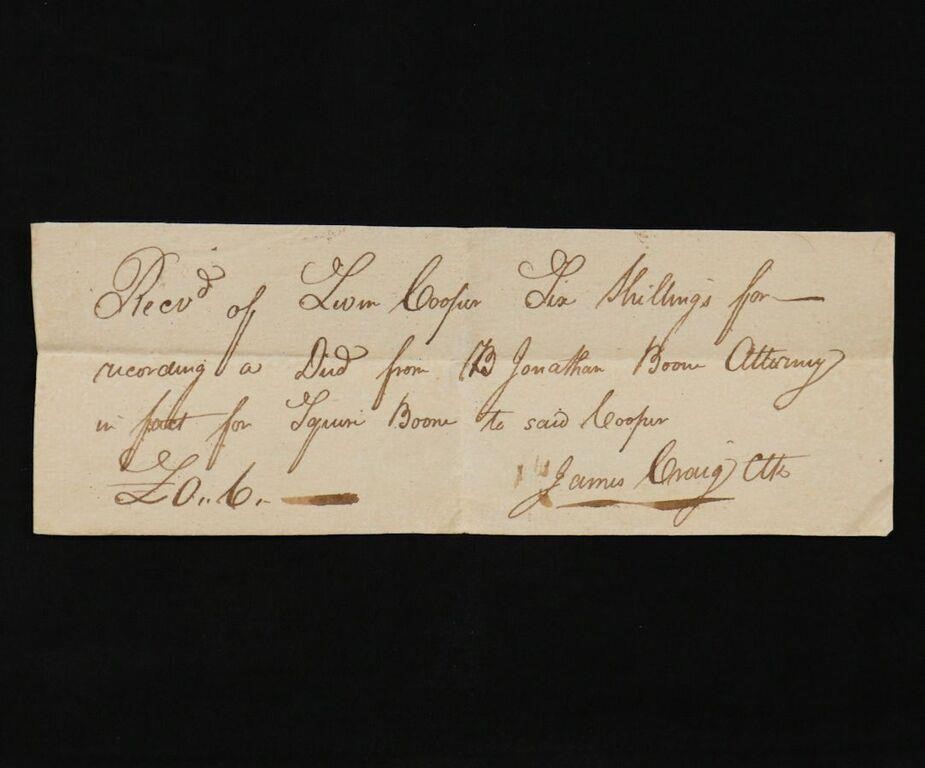 Recvd of Levin Cooper Six Shillings for
recording a Deed from Jonathan Boone Attorney
in fact for Squire Boone to said Cooper
£0..6.
James Craig